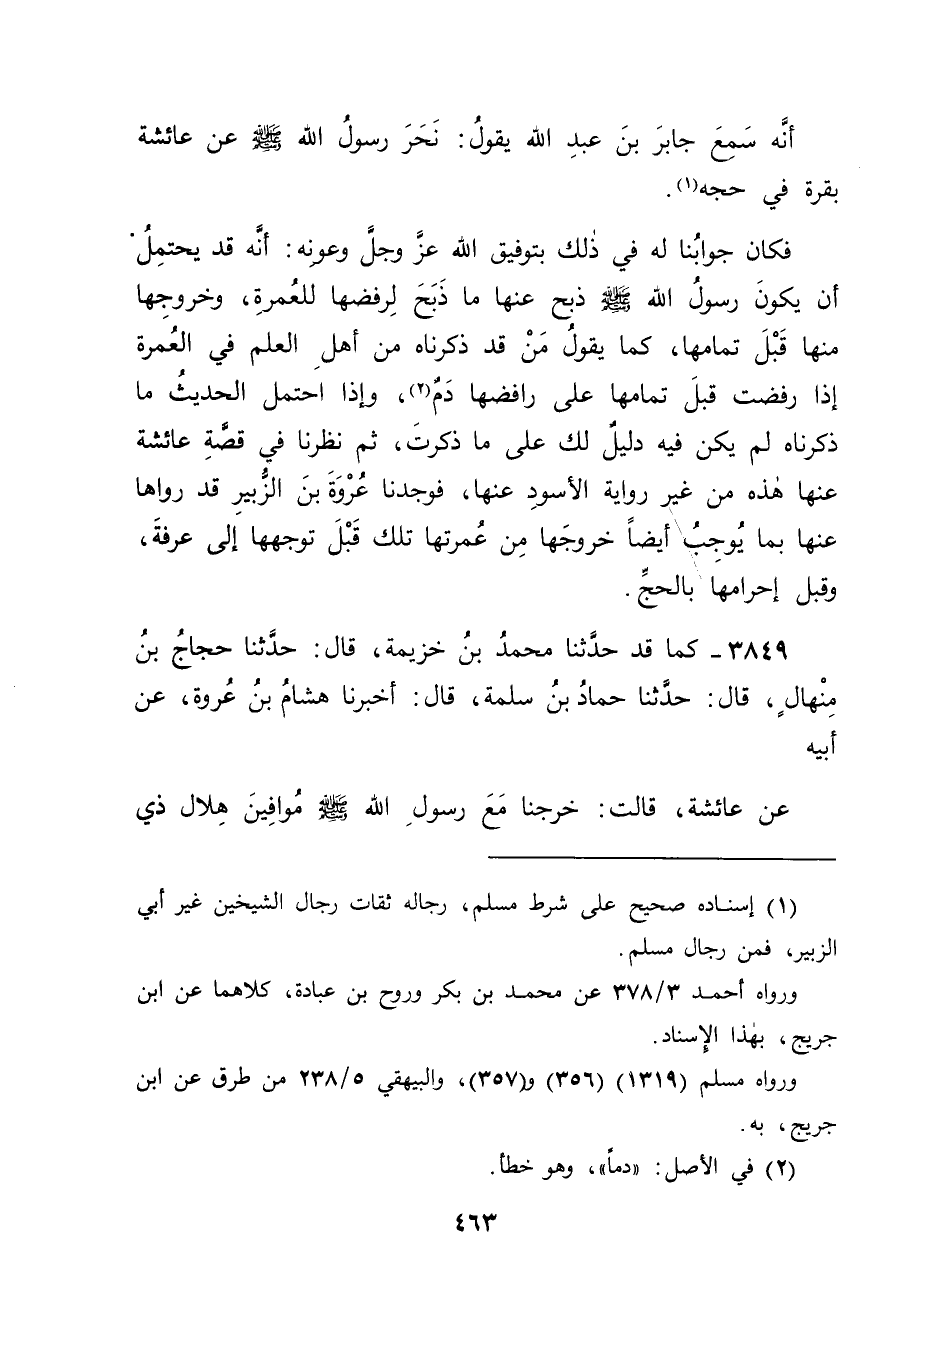 أنَّه سَمِعَ جابرَ بنَ عبدِ الله يقولُ: نَحَرَ رسولُ الله ﷺ عن عائشة
بقرة في حجه(١).
فكان جوابُنا له في ذٰلك بتوفيق الله عزَّ وجلَّ وعونِه: أنَّه قد يحتمِلُ
أن يكونَ رسولُ الله ﷺ ذبح عنها ما ذَبَحَ لِرفضها للعُمرةِ، وخروجِها
منها قَبْلَ تمامها، كما يقولُ مَنْ قد ذكرناه من أهلِ العلم في العُمرة
إذا رفضت قبلَ تمامها على رافضها دَمٌ(٢)، وإذا احتمل الحديثُ ما
ذكرناه لم يكن فيه دليلٌ لك على ما ذكرتَ، ثم نظرنا في قصَّةِ عائشة
عنها هٰذه من غيرِ رواية الأسودِ عنها، فوجدنا عُرْوَةَ بنَ الزُّبيرِ قد رواها
عنها بما يُوجِبُ أيضاً خروجَها مِن عُمرتها تلك قَبْلَ توجهها إلى عرفةَ،
وقبل إحرامها بالحجِّ.
٣٨٤٩ - كما قد حدَّثنا محمدُ بنُ خزيمة، قال: حدَّثنا حجاجُ بنُ
مِنْهالٍ، قال: حدَّثنا حمادُ بنُ سلمة، قال: أخبرنا هشامُ بنُ عُروة، عن
أبيه
عن عائشة، قالت: خرجنا مَعَ رسولِ الله ﷺ مُوافِينَ هِلال ذي
(١) إسناده صحيح على شرط مسلم، رجاله ثقات رجال الشيخين غير أبي
الزبير، فمن رجال مسلم.
ورواه أحمد ٣٧٨/٣ عن محمد بن بكر وروح بن عبادة، كلاهما عن ابن
جريج، بهٰذا الإسناد.
ورواه مسلم (١٣١٩) (٣٥٦) و(٣٥٧)، والبيهقي ٢٣٨/٥ من طرق عن ابن
جريج، به.
(٢) في الأصل: «دماً»، وهو خطأ.
٤٦٣